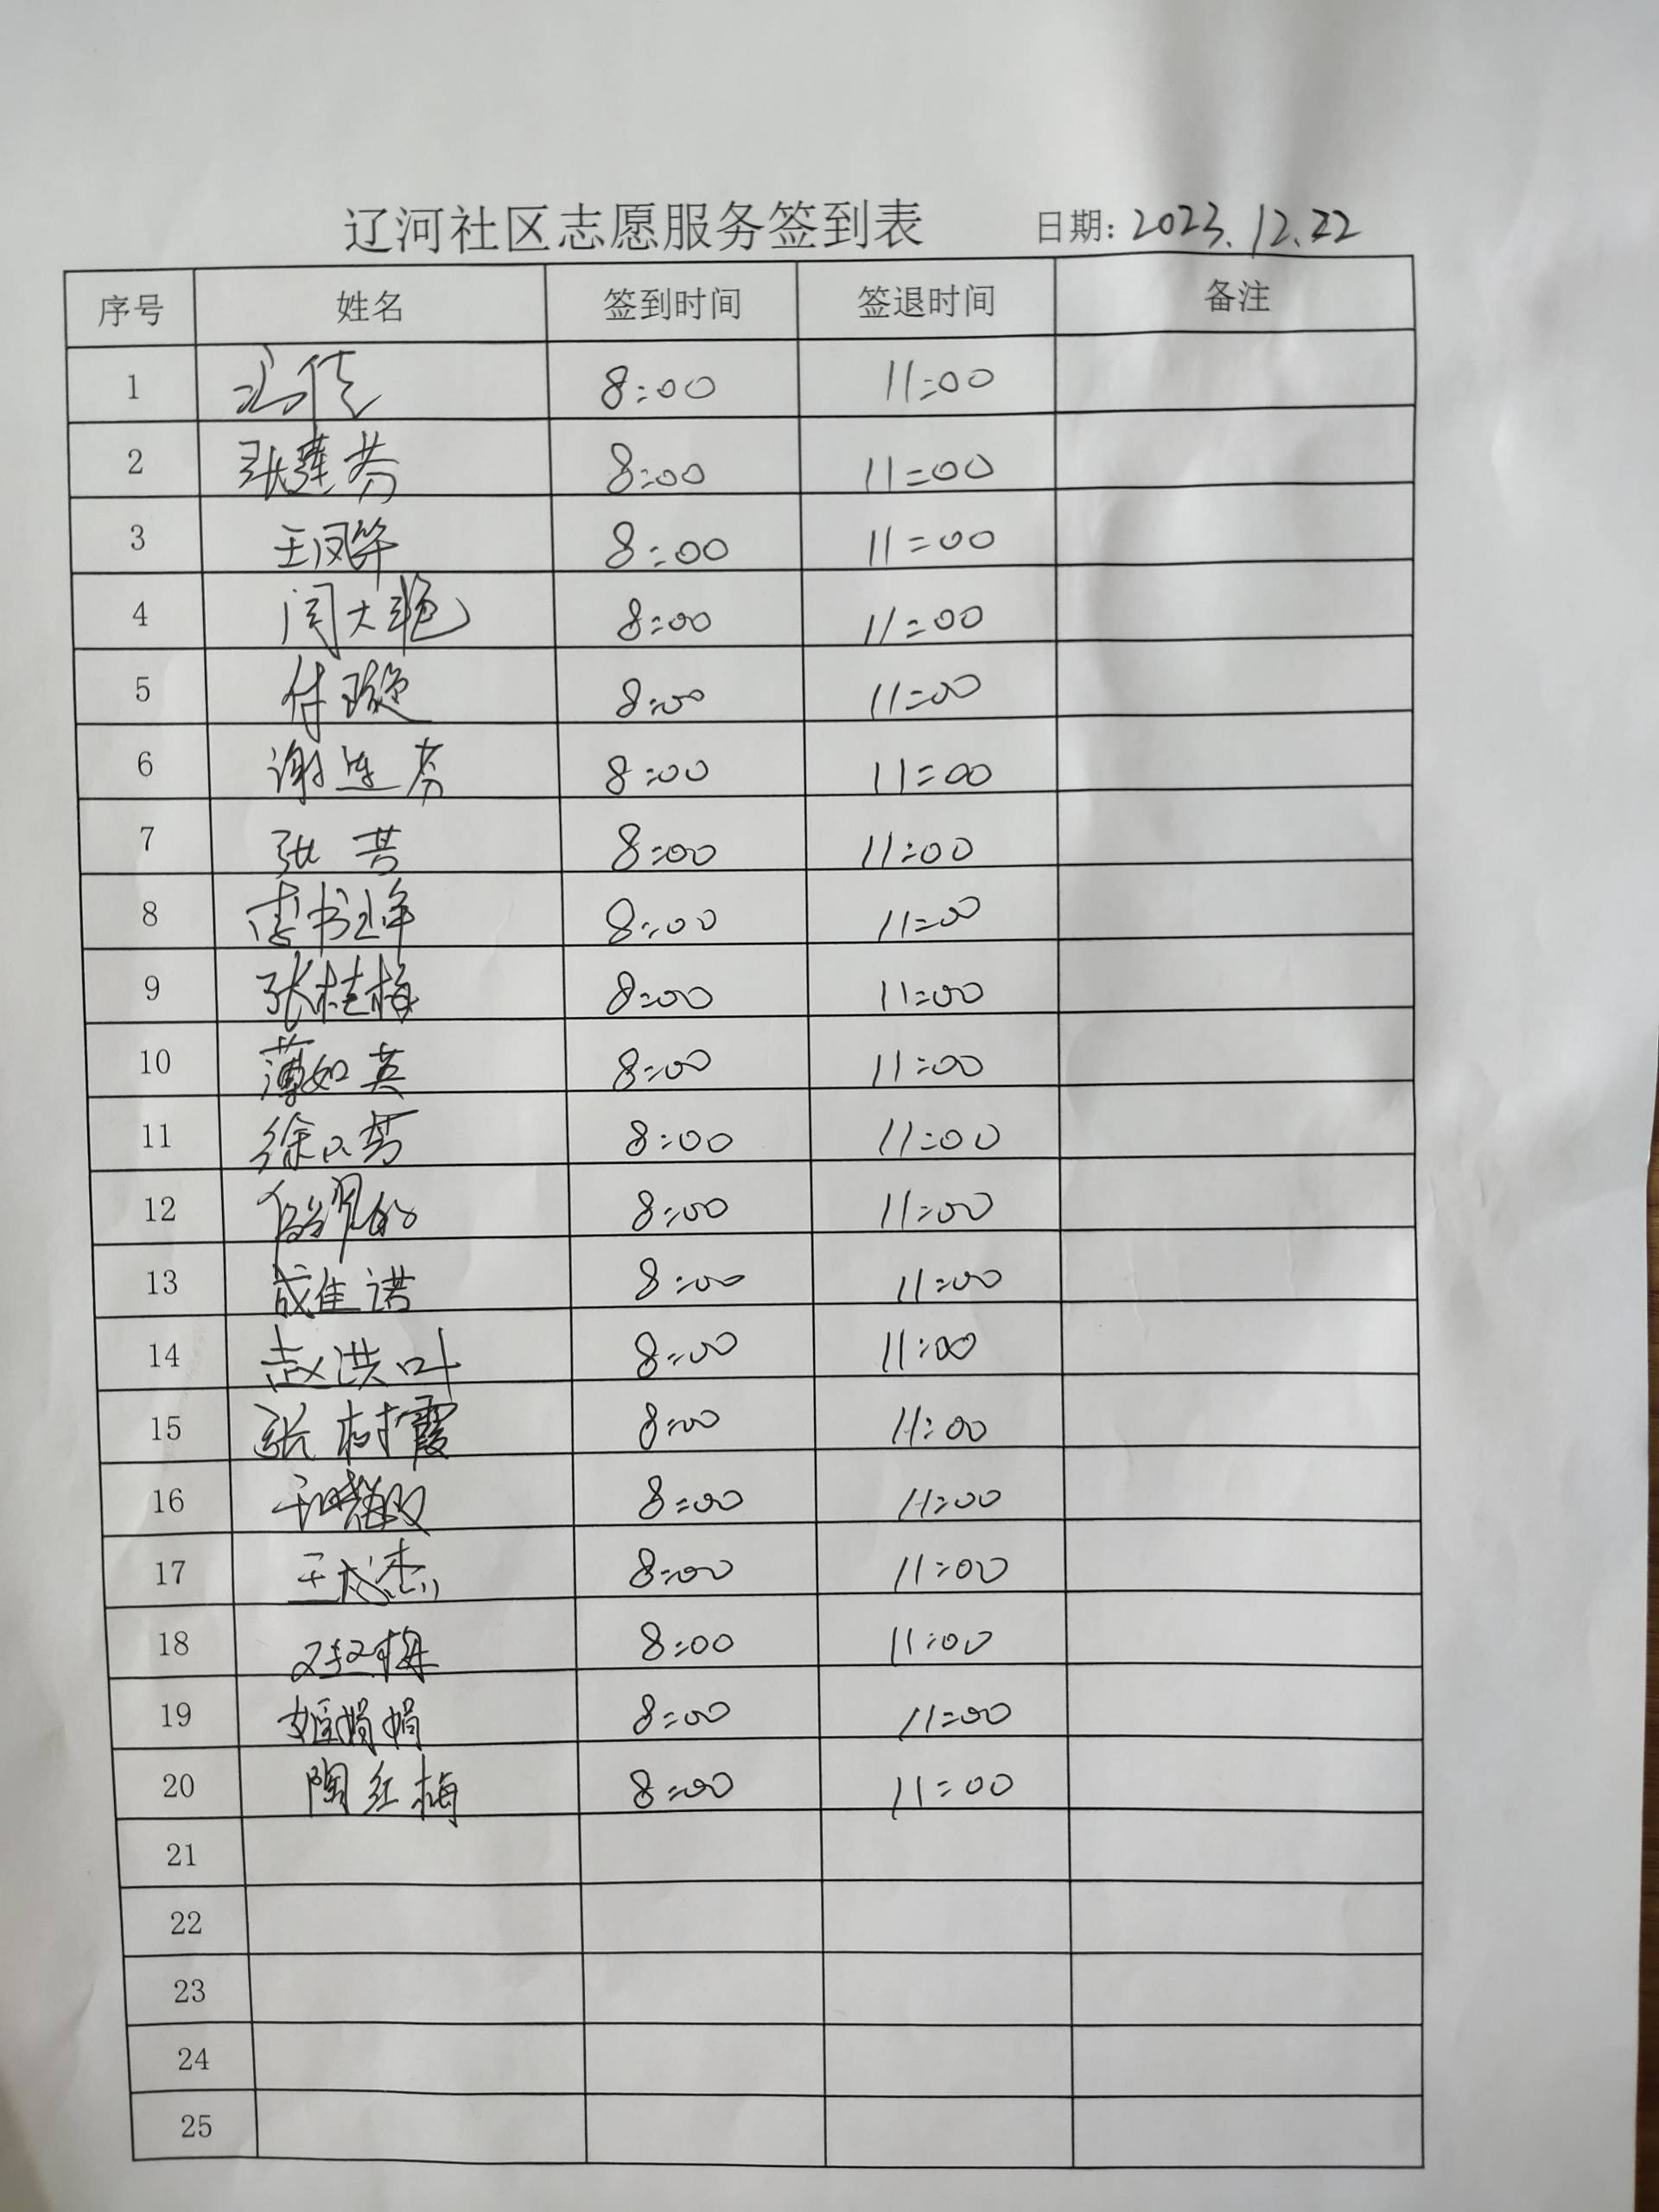 辽河社区志愿服务签到表 日期: 2023.12.22
序号 姓名 签到时间 签退时间 备注
1 8:00 11:00
2 张莲芬 8:00 11:00
3 王凤华 8:00 11:00
4 闫大艳 8:00 11:00
5 付璇 8:00 11:00
6 谢连芬 8:00 11:00
7 张芸 8:00 11:00
8 李书峰 8:00 11:00
9 张桂梅 8:00 11:00
10 薄如英 8:00 11:00
11 徐 芳 8:00 11:00
12 8:00 11:00
13 成佳诺 8:00 11:00
14 赵洪叶 8:00 11:00
15 张树霞 8:00 11:00
16 8:00 11:00
17 王 杰 8:00 11:00
18 8:00 11:00
19 姬娟娟 8:00 11:00
20 陶红梅 8:00 11:00
21
22
23
24
25